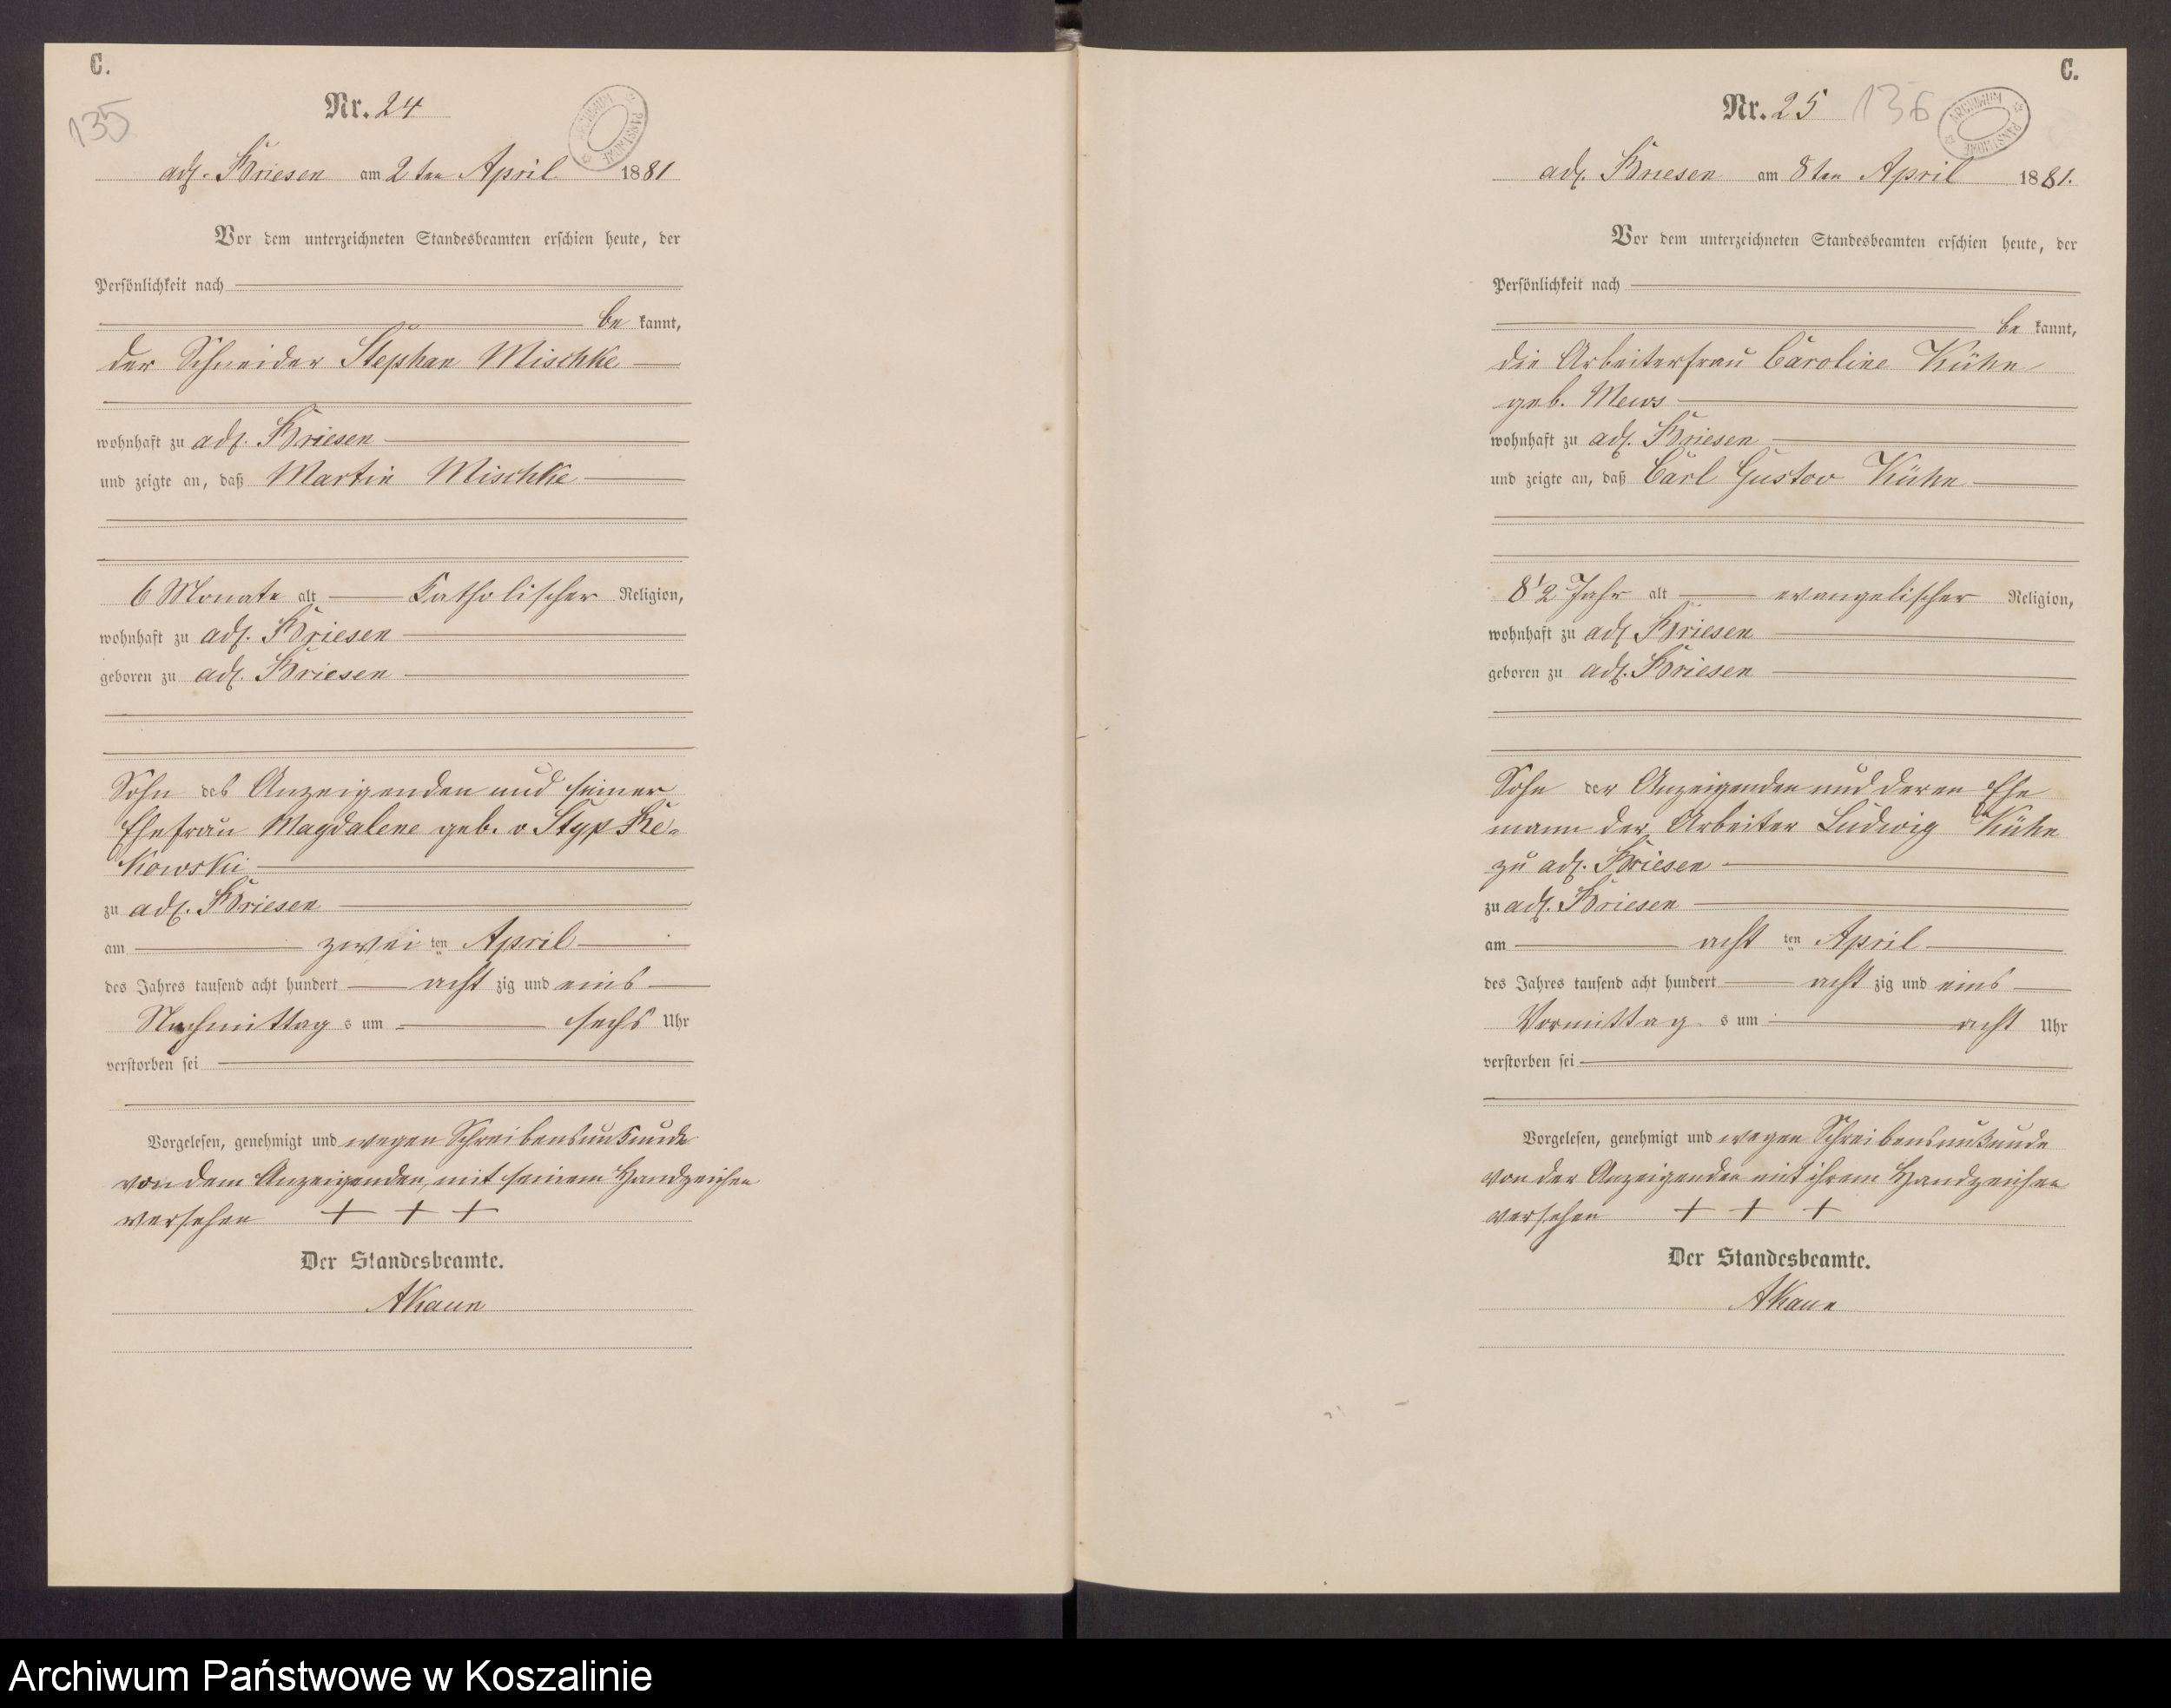 C.
135
Nr. 24
ARCHIWUM PAŃSTWOWE
adl. Briesen am 2ten April 1881
Vor dem unterzeichneten Standesbeamten erschien heute, der
Persönlichkeit nach
be kannt,
der Schneider Stephan Mischke
wohnhaft zu adl. Briesen
und zeigte an, daß Martin Mischke
6 Monate alt katholischer Religion,
wohnhaft zu adl. Briesen
geboren zu adl. Briesen
Sohn des Anzeigenden und seiner
Ehefrau Magdalene geb. v Styp Re-
kowski
zu adl. Briesen
am zwei ten April
des Jahres tausend acht hundert acht zig und eins
Nachmittag s um sechs Uhr
verstorben sei
Vorgelesen, genehmigt und wegen Schreibensunkunde
von dem Anzeigenden, mit seinem Handzeichen
versehen + + +
Der Standesbeamte.
AKaun
C.
Nr. 25 136
ARCHIWUM PAŃSTWOWE
adl. Briesen am 8ten April 1881.
Vor dem unterzeichneten Standesbeamten erschien heute, der
Persönlichkeit nach
be kannt,
die Arbeiterfrau Caroline Kühn
geb. Mews
wohnhaft zu adl. Briesen
und zeigte an, daß Carl Gustav Kühn
8 1/2 Jahr alt evangelischer Religion,
wohnhaft zu adl. Briesen
geboren zu adl. Briesen
Sohn der Anzeigenden und deren Ehe
mann der Arbeiter Ludwig Kühn
zu adl. Briesen
zu adl. Briesen
am acht ten April
des Jahres tausend acht hundert acht zig und eins
Vormittag s um acht Uhr
verstorben sei
Vorgelesen, genehmigt und wegen Schreibensunkunde
von der Anzeigenden mit ihrem Handzeichen
versehen + + +
Der Standesbeamte.
AKaun
Archiwum Państwowe w Koszalinie